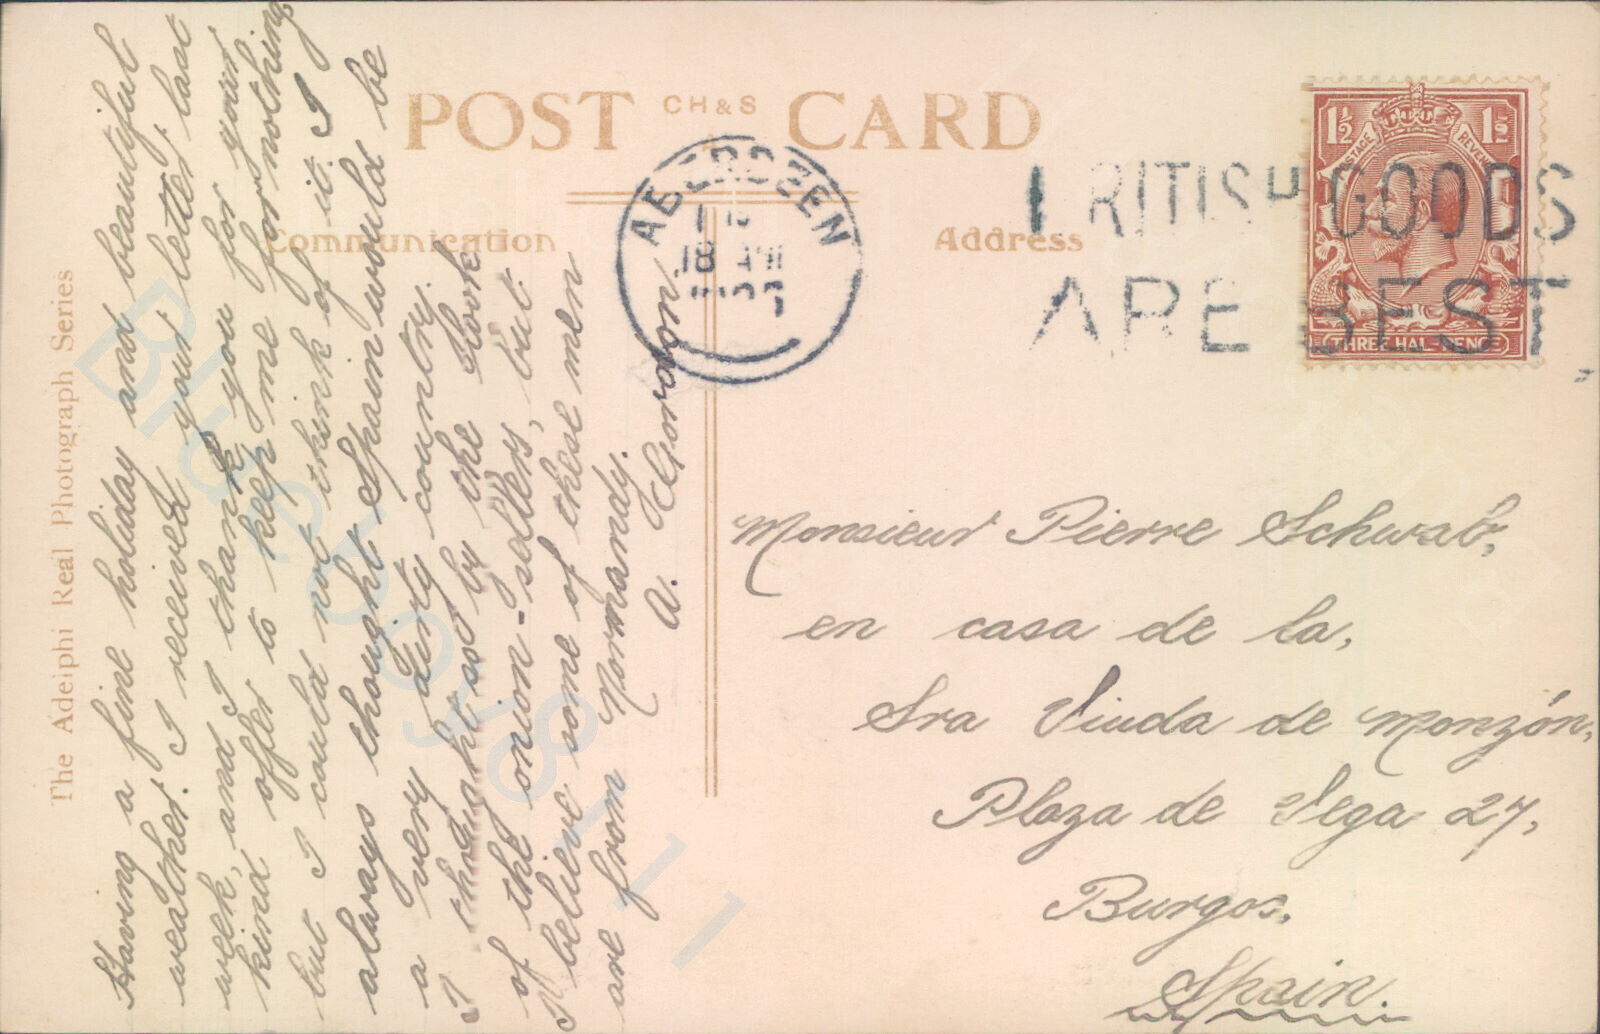 POST CH&S CARD
Communication
Address
The Adelphi Real Photograph Series
Having a fine holiday and beautiful
weather. I received your letter last
week, and I thank you for your
kind offer to keep me for nothing
but I could not think of it. I
always thought Spain would be
a very dirty country.
I thought so by the look
of the onion-sellers, but
I believe some of these men
are from Normandy.
A. Gordon
ABERDEEN
18
BRITISH GOODS
ARE BEST
1½ 1½
POSTAGE REVENUE
THREE HALFPENCE
Monsieur Pierre Schwab,
en casa de la,
Sra Viuda de Monzón,
Plaza de Vega 27,
Burgos,
Spain.